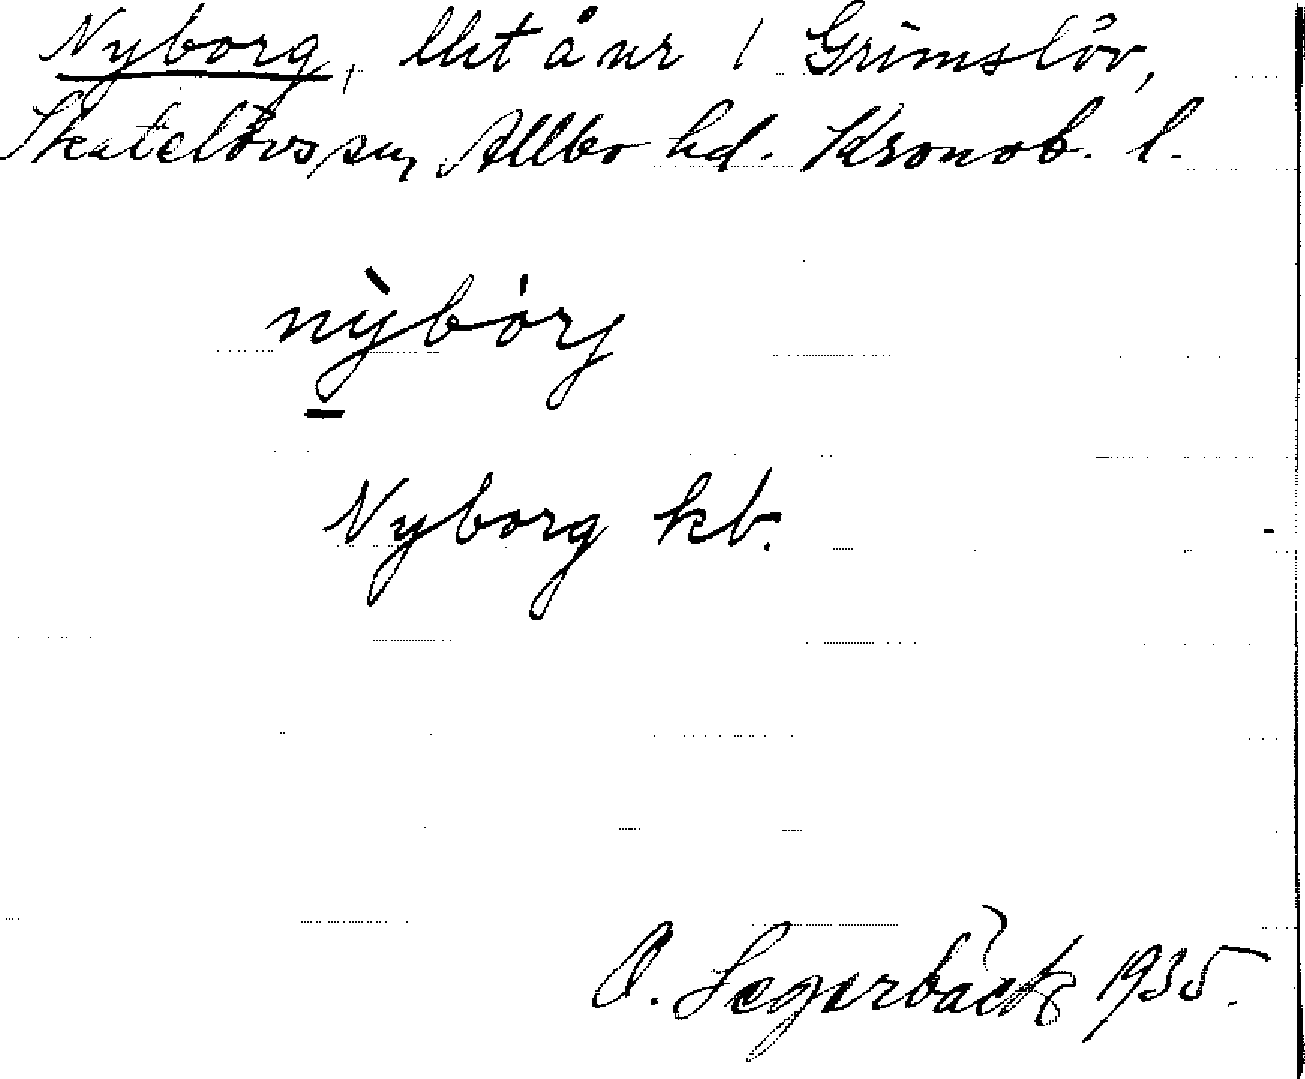 Nyborg, lht å nr 1 Grimslöv,
Skatelövs sn, Allbo hd. Kronob. l.
nỳbórj
Nyborg kb.
O. Segerbäck 1935.